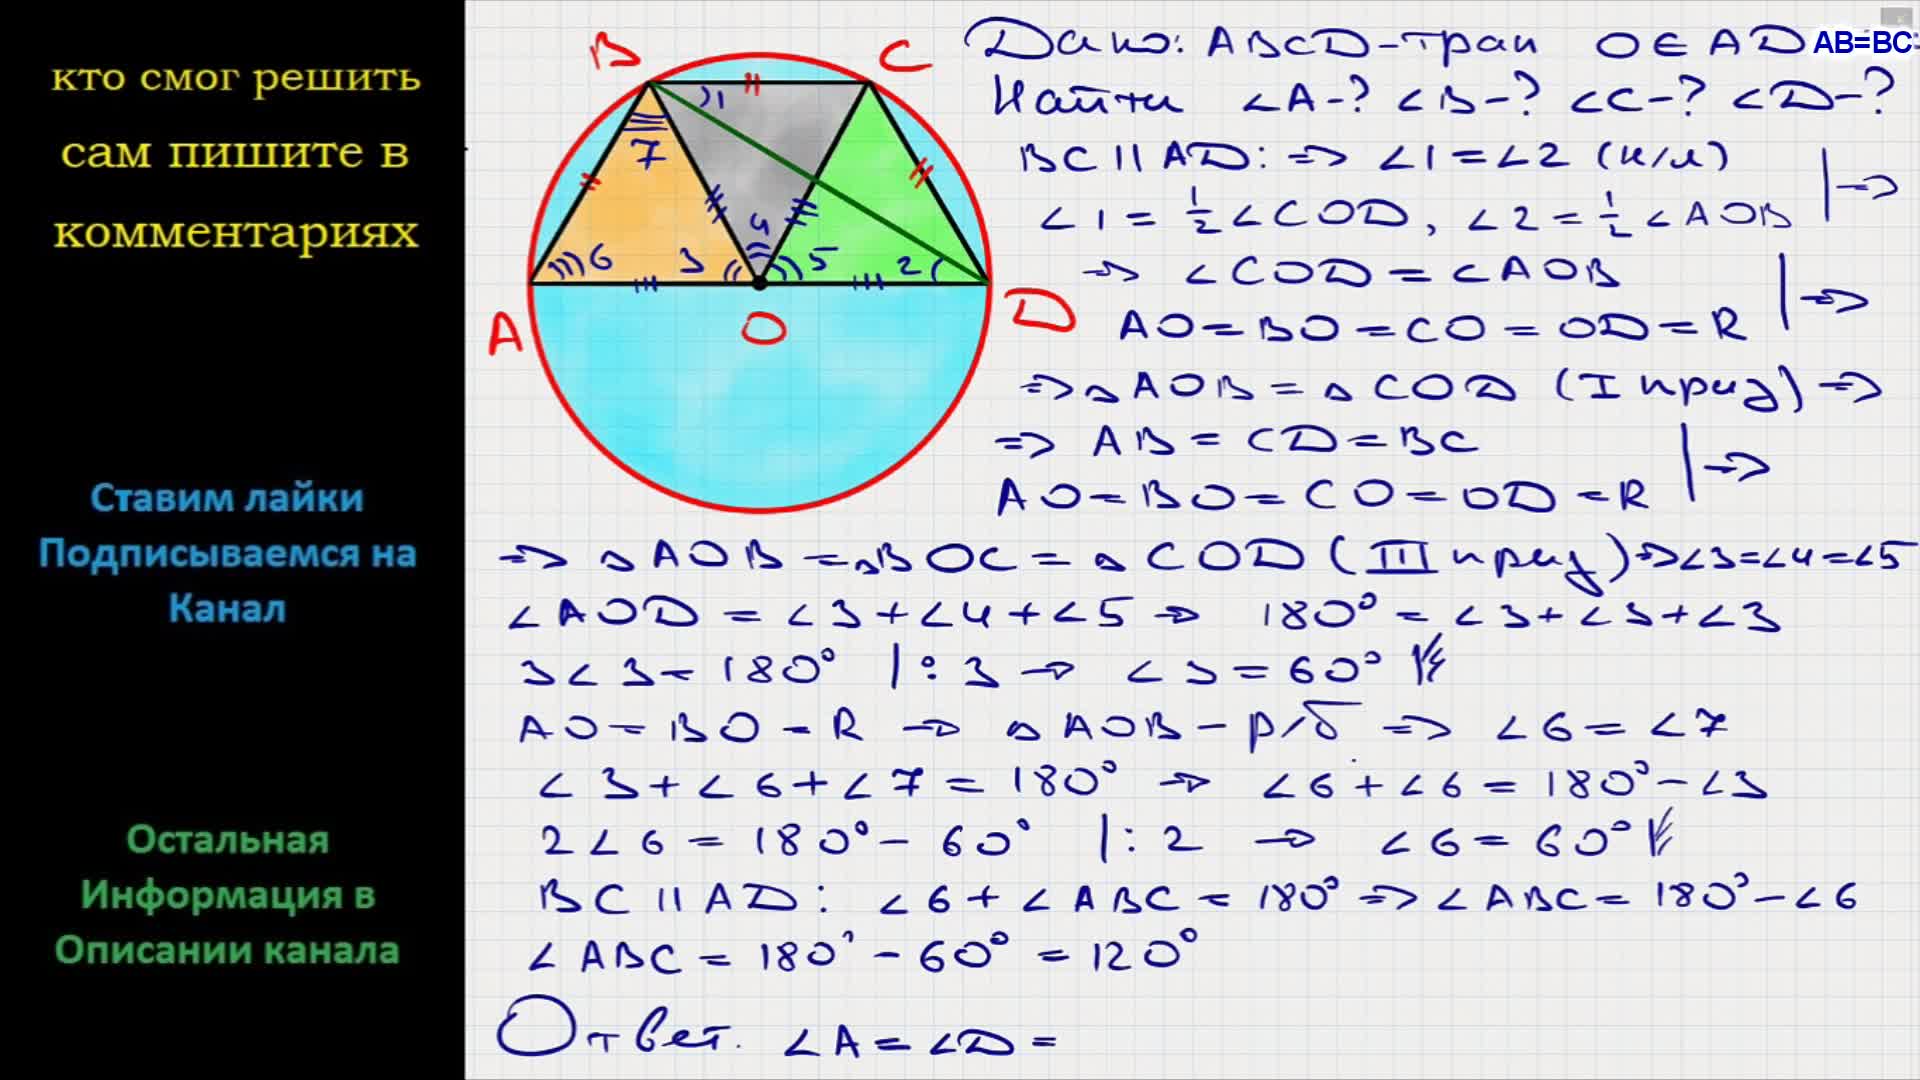 кто смог решить
сам пишите в
комментариях
Ставим лайки
Подписываемся на
Канал
Остальная
Информация в
Описании канала
B
C
A
O
D
1
7
4
6
3
5
2
Дано: ABCD-трап O∈AD AB=BC
Найти ∠A-? ∠B-? ∠C-? ∠D-?
BC||AD: => ∠1=∠2 (н/л) | =>
∠1 = 1/2 ∠COD, ∠2 = 1/2 ∠AOB
=> ∠COD = ∠AOB | =>
AO=BO=CO=OD=R
=> △AOB = △COD (I призн) =>
=> AB = CD = BC | =>
AO=BO=CO=OD=R
=> △AOB = △BOC = △COD (III призн) => ∠3=∠4=∠5
∠AOD = ∠3+∠4+∠5 => 180° = ∠3+∠3+∠3
3∠3 = 180° |:3 => ∠3 = 60°
AO=BO=R => △AOB - р/б => ∠6 = ∠7
∠3+∠6+∠7 = 180° => ∠6+∠6 = 180°-∠3
2∠6 = 180° - 60° |:2 => ∠6 = 60°
BC||AD: ∠6+∠ABC = 180° => ∠ABC = 180°-∠6
∠ABC = 180° - 60° = 120°
Ответ. ∠A = ∠D =